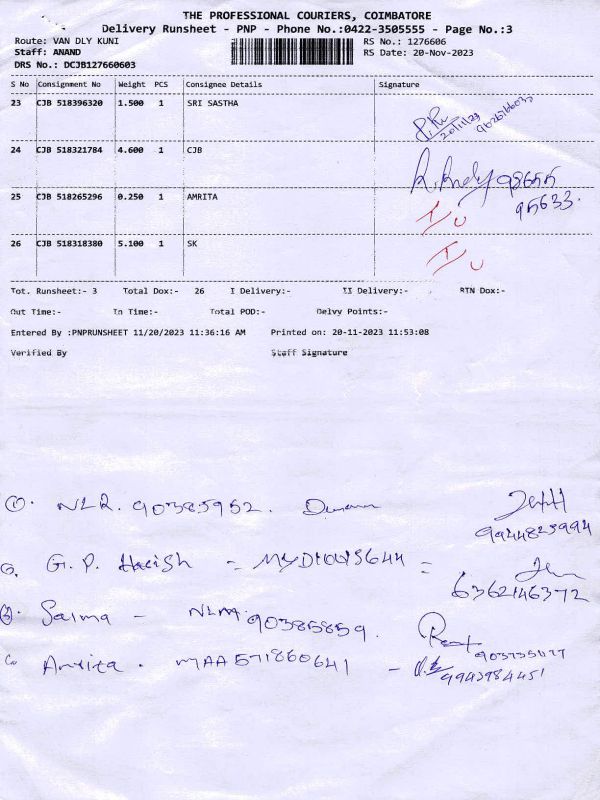 THE PROFESSIONAL COURIERS, COIMBATORE
Delivery Runsheet - PNP - Phone No.:0422-3505555 - Page No.:3
Route: VAN DLY KUNI RS No.: 1276606
Staff: ANAND RS Date: 20-Nov-2023
DRS No.: DCJB127660603
S No Consignment No Weight PCS Consignee Details Signature
23 CJB 518396320 1.500 1 SRI SASTHA
20/11/23
24 CJB 518321784 4.600 1 CJB
98655
25 CJB 518265296 0.250 1 AMRITA
95633
I/U
26 CJB 518318380 5.100 1 SK
I/U
Tot. Runsheet:- 3 Total Dox:- 26 I Delivery:- II Delivery:- RTN Dox:-
Out Time:- In Time:- Total POD:- Delvy Points:-
Entered By :PNPRUNSHEET 11/20/2023 11:36:16 AM Printed on: 20-11-2023 11:53:08
Verified By Staff Signature
①. NLR. 90385952.
9944823994
G. P. Harish = =
6362146372
③ Salma - NLM. 90385859.
Amrita. MAA571860641 -
9943984451